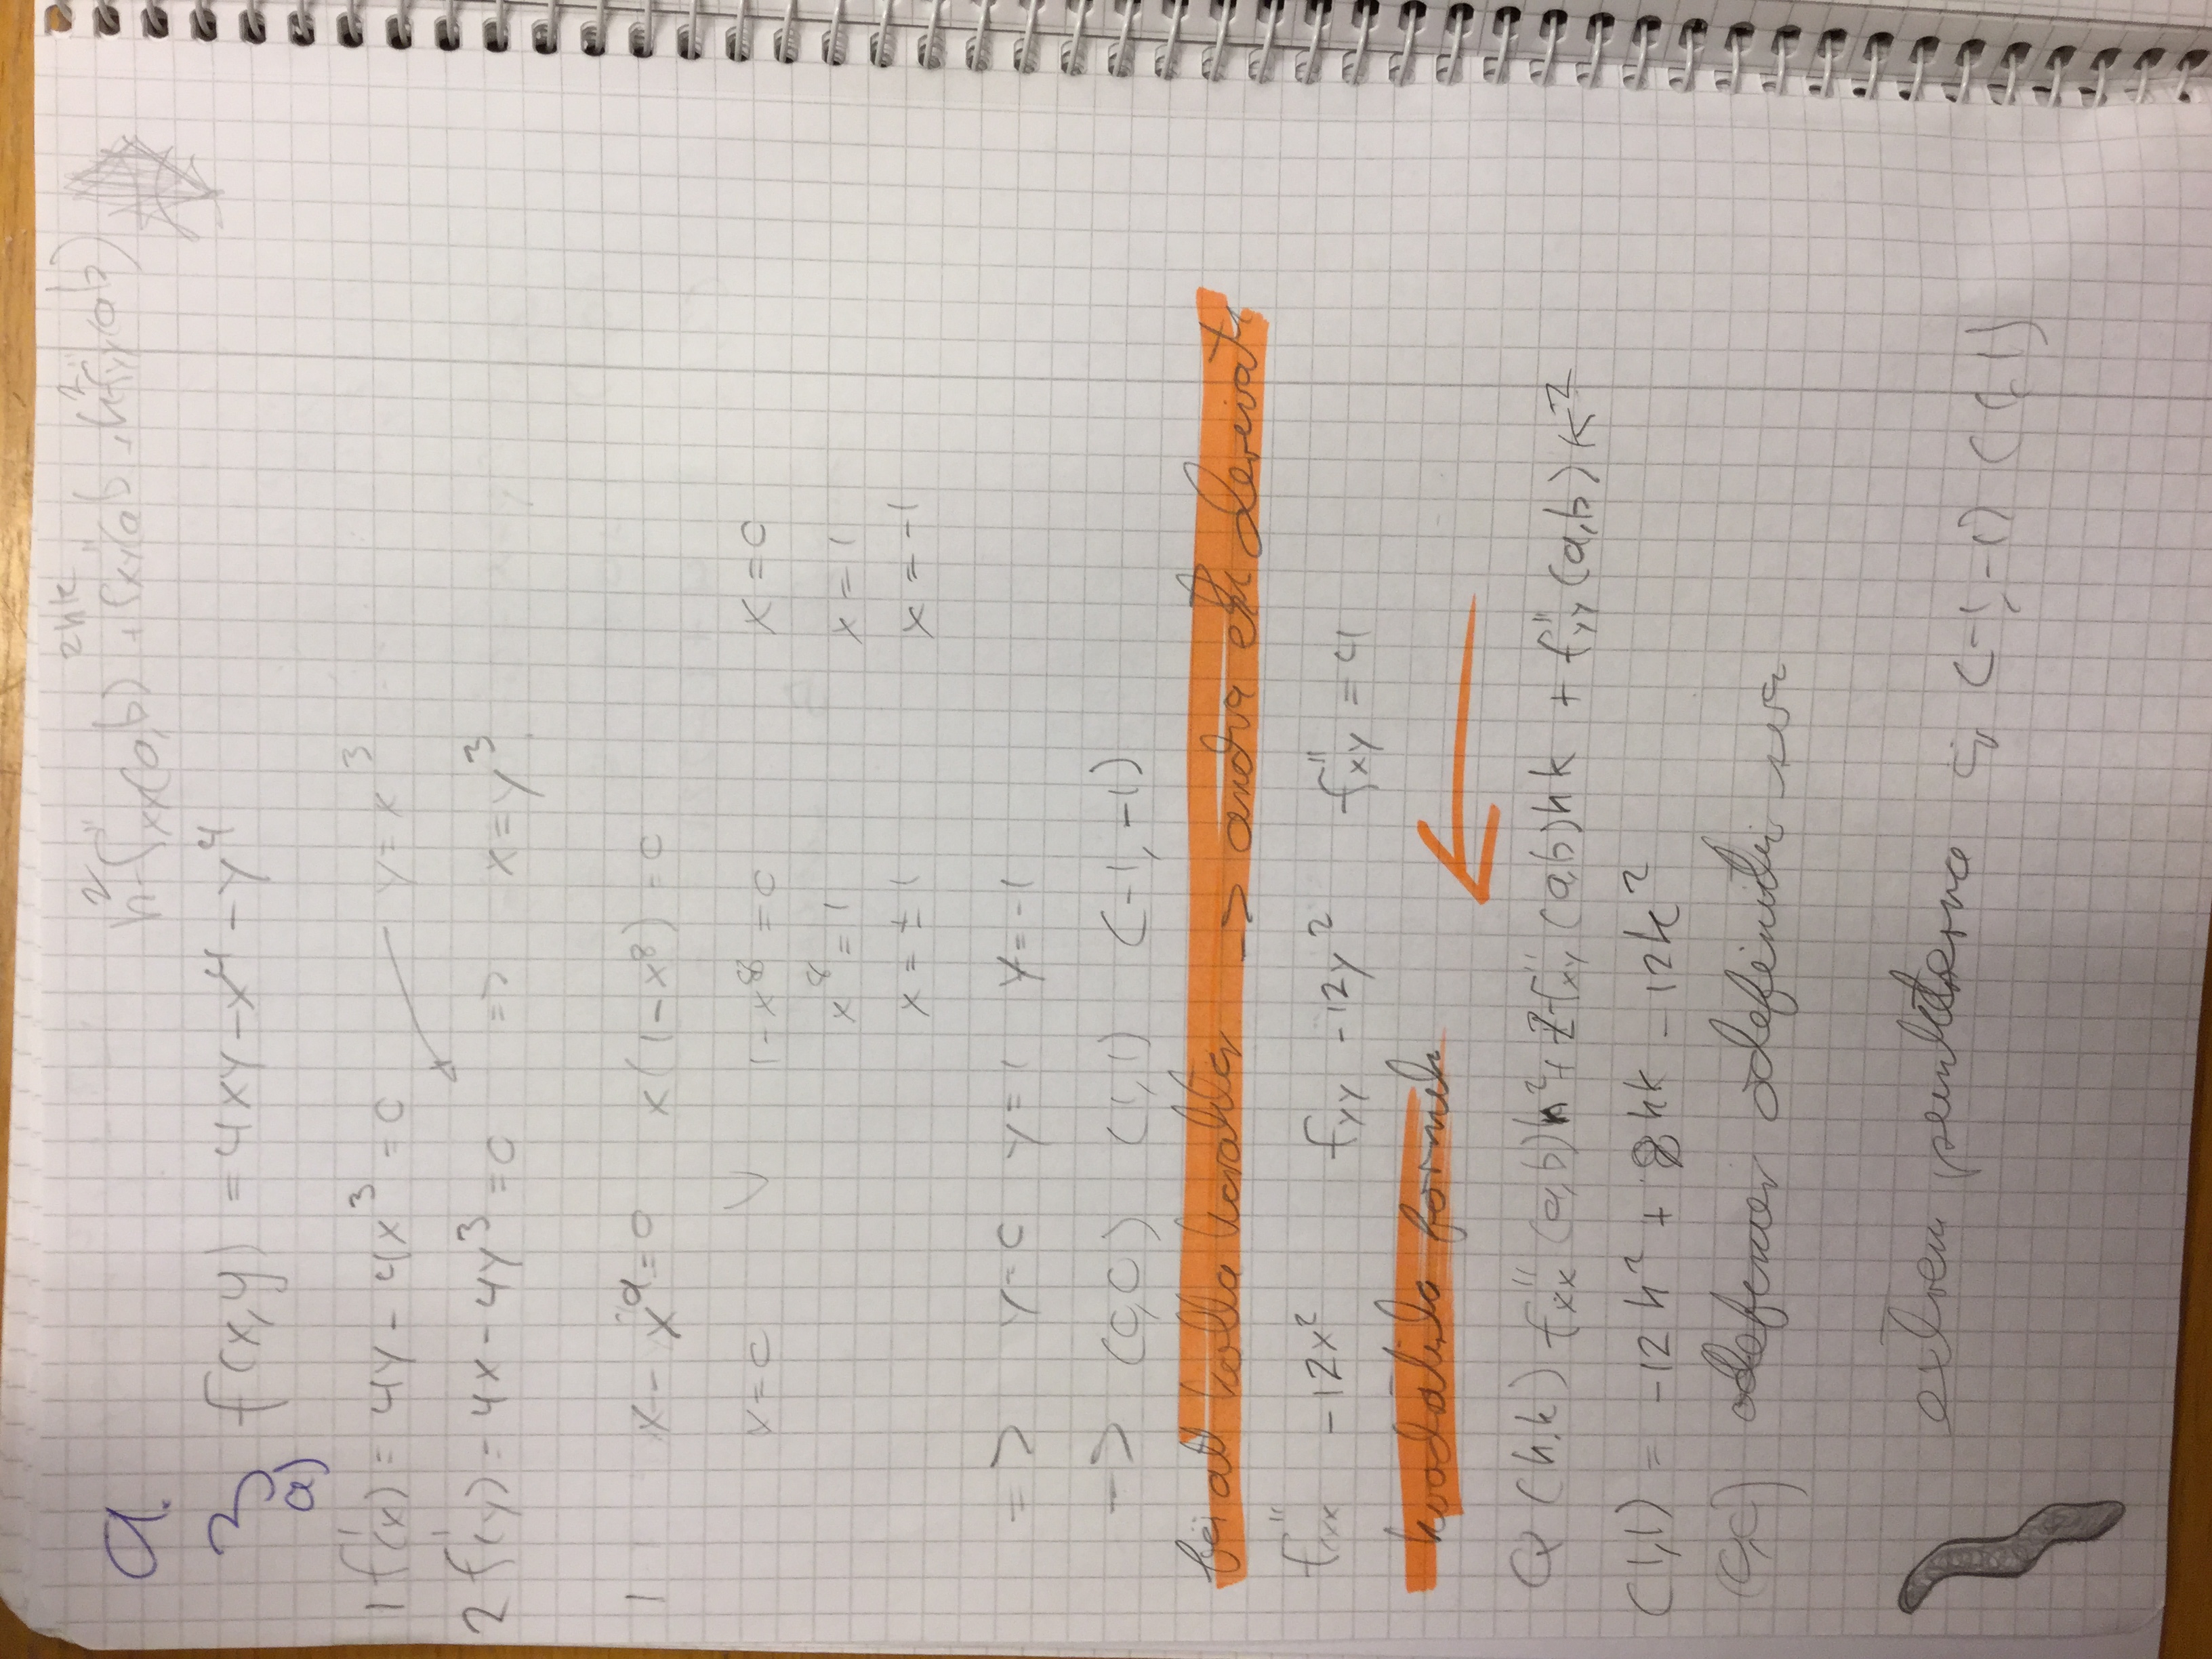 9.
h² f''xx(a,b) + 2hk f''xy(ab + k² f''yy(ab)
3 f(x,y) = 4xy - x⁴ - y⁴
a)
1 f'(x) = 4y - 4x³ = 0 y = x³
2 f'(y) = 4x - 4y³ = 0 => x = y³
1 x - x⁹ = 0 x(1 - x⁸) = 0
x = 0 V 1 - x⁸ = 0 x = 0
x⁸ = 1 x = 1
x = ±1 x = -1
=> y = 0 y = 1 y = -1
-> (0,0) (1,1) (-1,-1)
för att kolla karaktär -> andra derivata
f''xx -12x² fyy -12y² f''xy = 4
kvadratiska formeln
Q(h,k) f''xx(a,b)h² + 2f''xy(a,b)hk + f''yy(a,b)k²
(1,1) = -12h² + 8hk - 12k²
(0,0)
extrem punkterna är (-1,-1) (1,1)